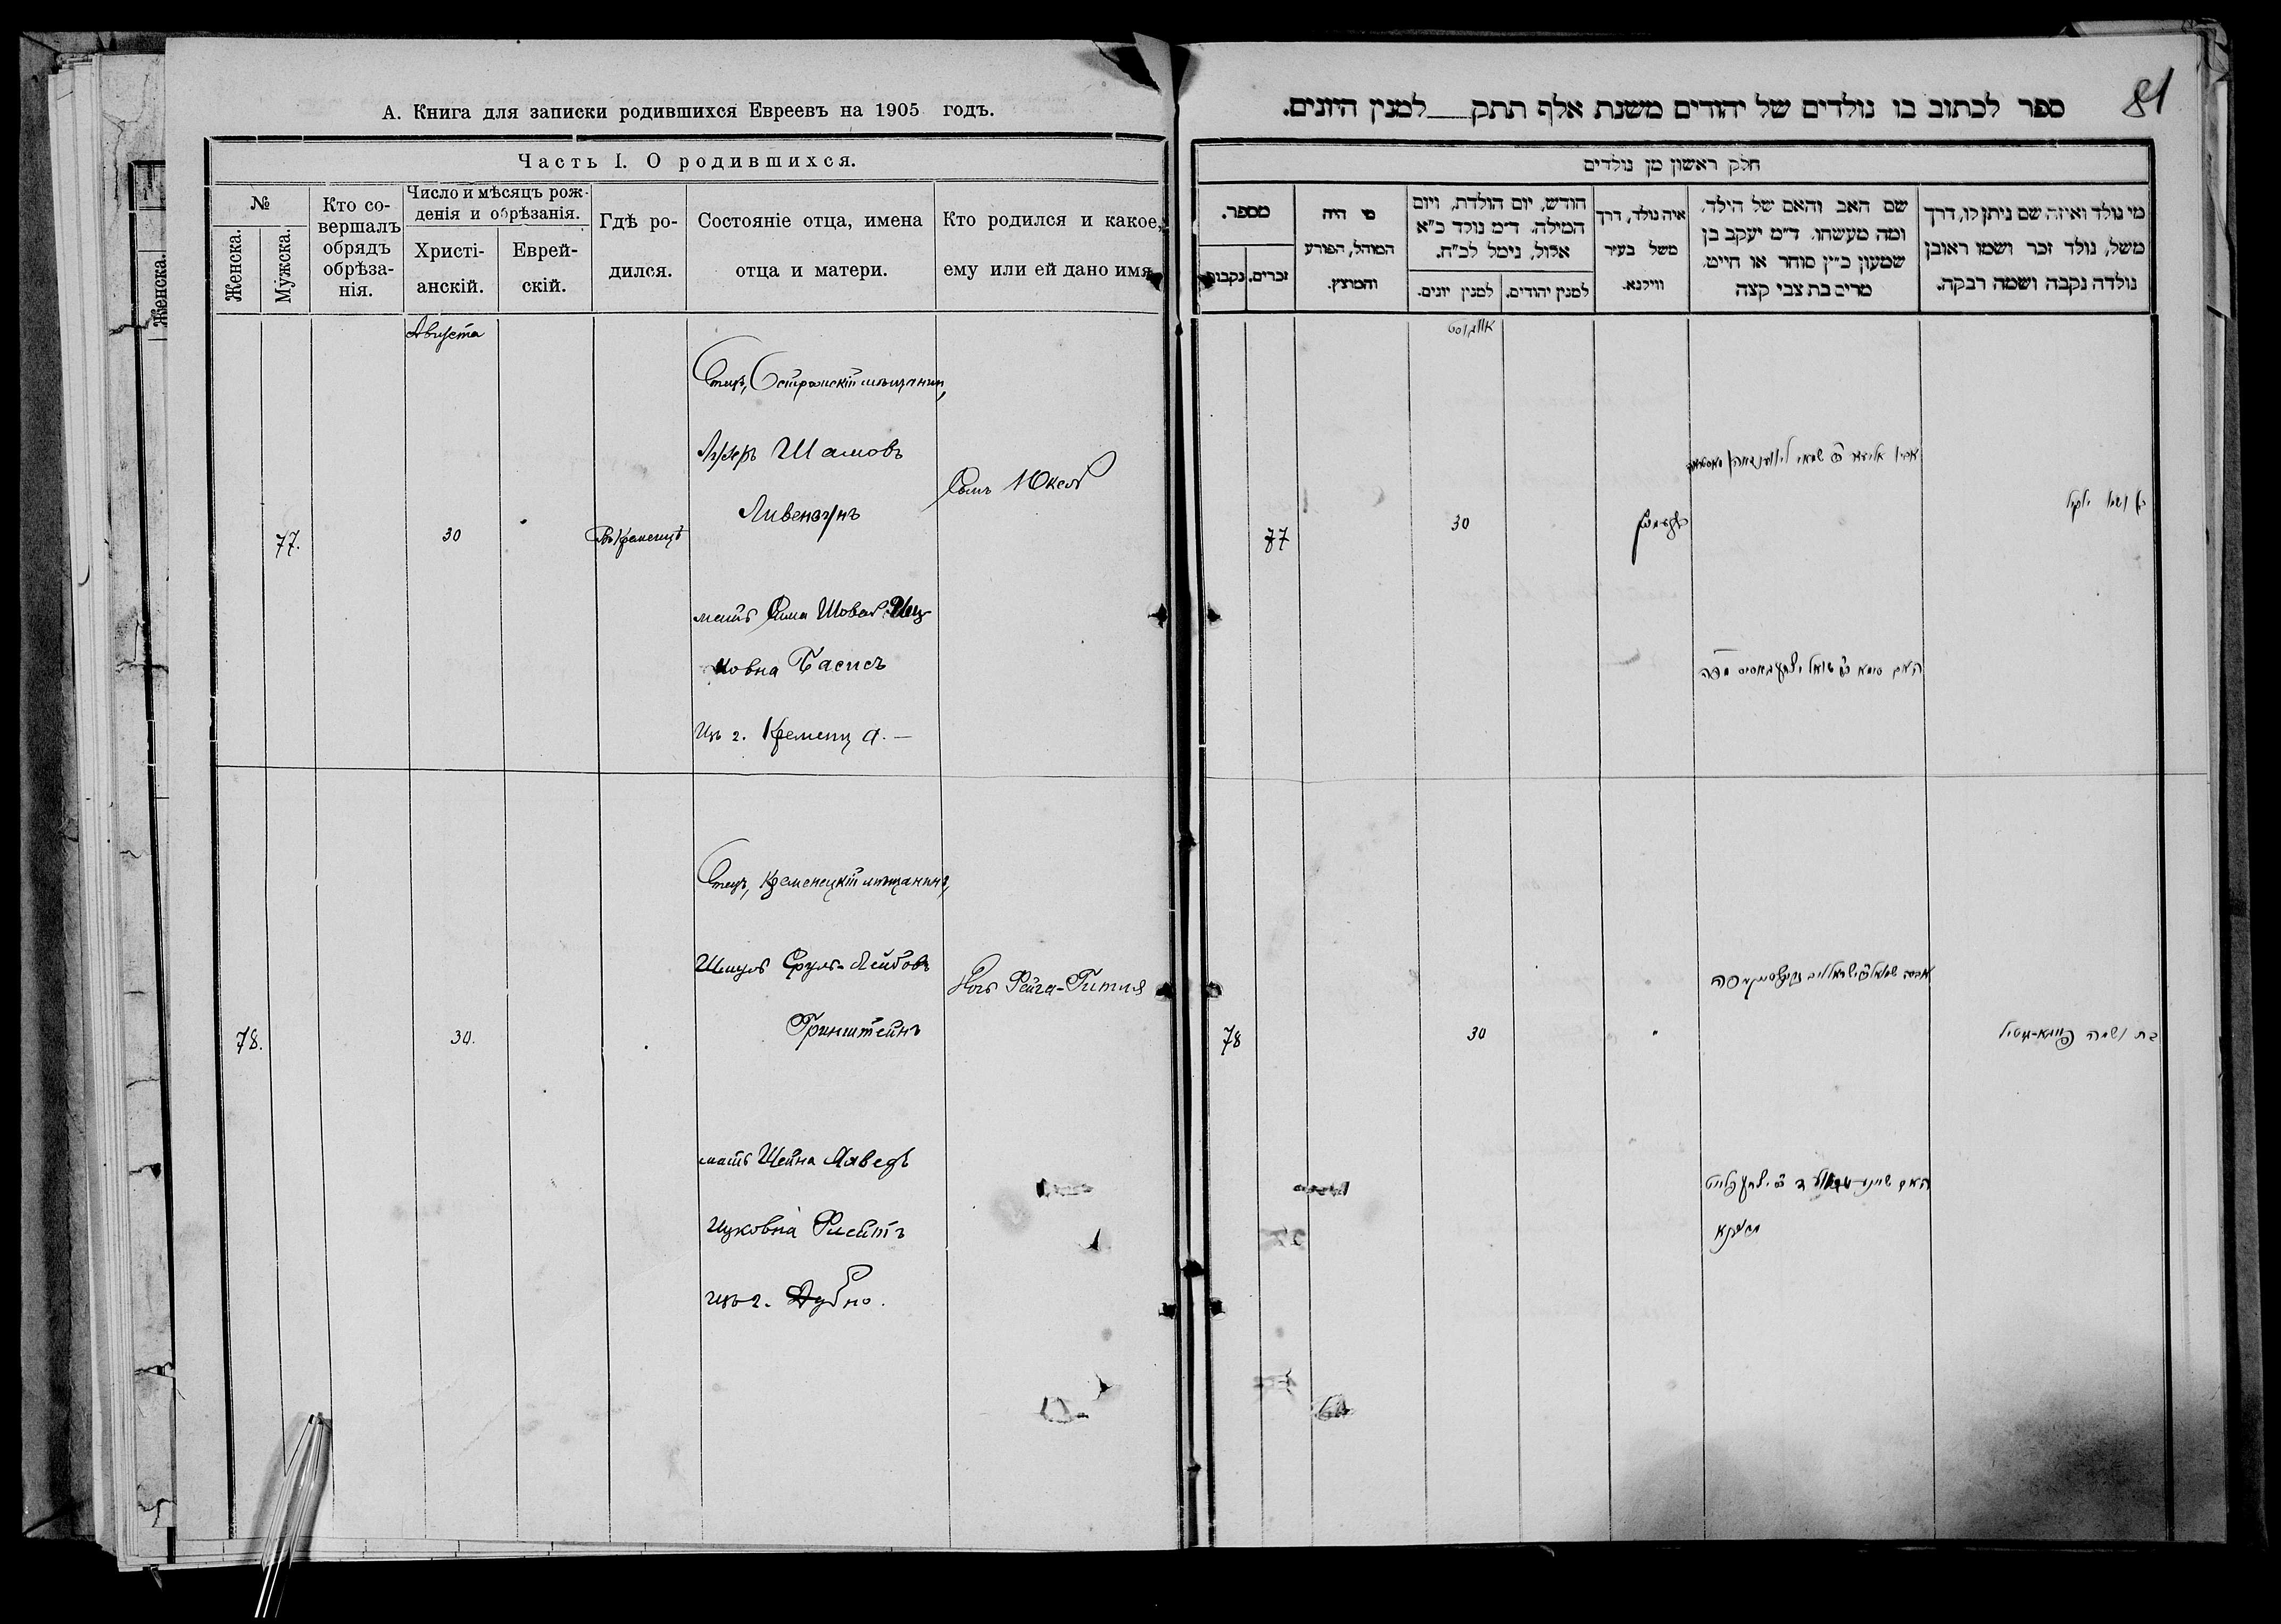 А. Книга для записки родившихся Евреевъ на 1905 годъ.
Часть I. О родившихся.
№
Женска.
Мужска.
Кто со-
вершалъ
обрядъ
обрѣза-
нія.
Число и мѣсяцъ рож-
денія и обрѣзанія.
Христі-
анскій.
Еврей-
скій.
Гдѣ ро-
дился.
Состояніе отца, имена
отца и матери.
Кто родился и какое,
ему или ей дано имя
Августа
77.
30
Въ Кременцѣ
Отецъ, Острожскій мѣщанин,
Лузеръ Шамовъ
Ливензунъ
мать Сима Шовел Иц
ковна Басисъ
Изъ г. Кременца. —
Сынъ Юкел
78.
30.
Отецъ, Кременецкій мѣщанинъ,
Шмуль Сруль-Лейбовъ
Гринштейнъ
мать Шейна
Ицковна Флейтъ
изъ г. Дубно.
Дочь Фейга-Гитля
81
ספר לכתוב בו נולדים של יהודים משנת אלף תתק___למנין היונים.
חלק ראשון מן נולדים
מי נולד ואיזה שם ניתן לו, דרך
משל, נולד זכר ושמו ראובן
נולדה נקבה ושמה רבקה.
שם האב והאם של הילד,
ומה מעשהו, ד״מ יעקב בן
שמעון כ״ץ סוחר או חייט,
מרים בת צבי קצה
איה נולד, דרך
משל בעיר
ווילנא.
חודש, יום הולדת, ויום
המילה, ד״מ נולד כ״א
אלול, נימל לכ״ח.
למנין יהודים.
למנין יונים.
מי היה
המוהל, הפורע
והמוצץ.
מספר.
זכרים.
נקבות
אויגוסט
77
30
בן ושמו יוקיל
78
30
בת ושמה פייגא-גיטיל